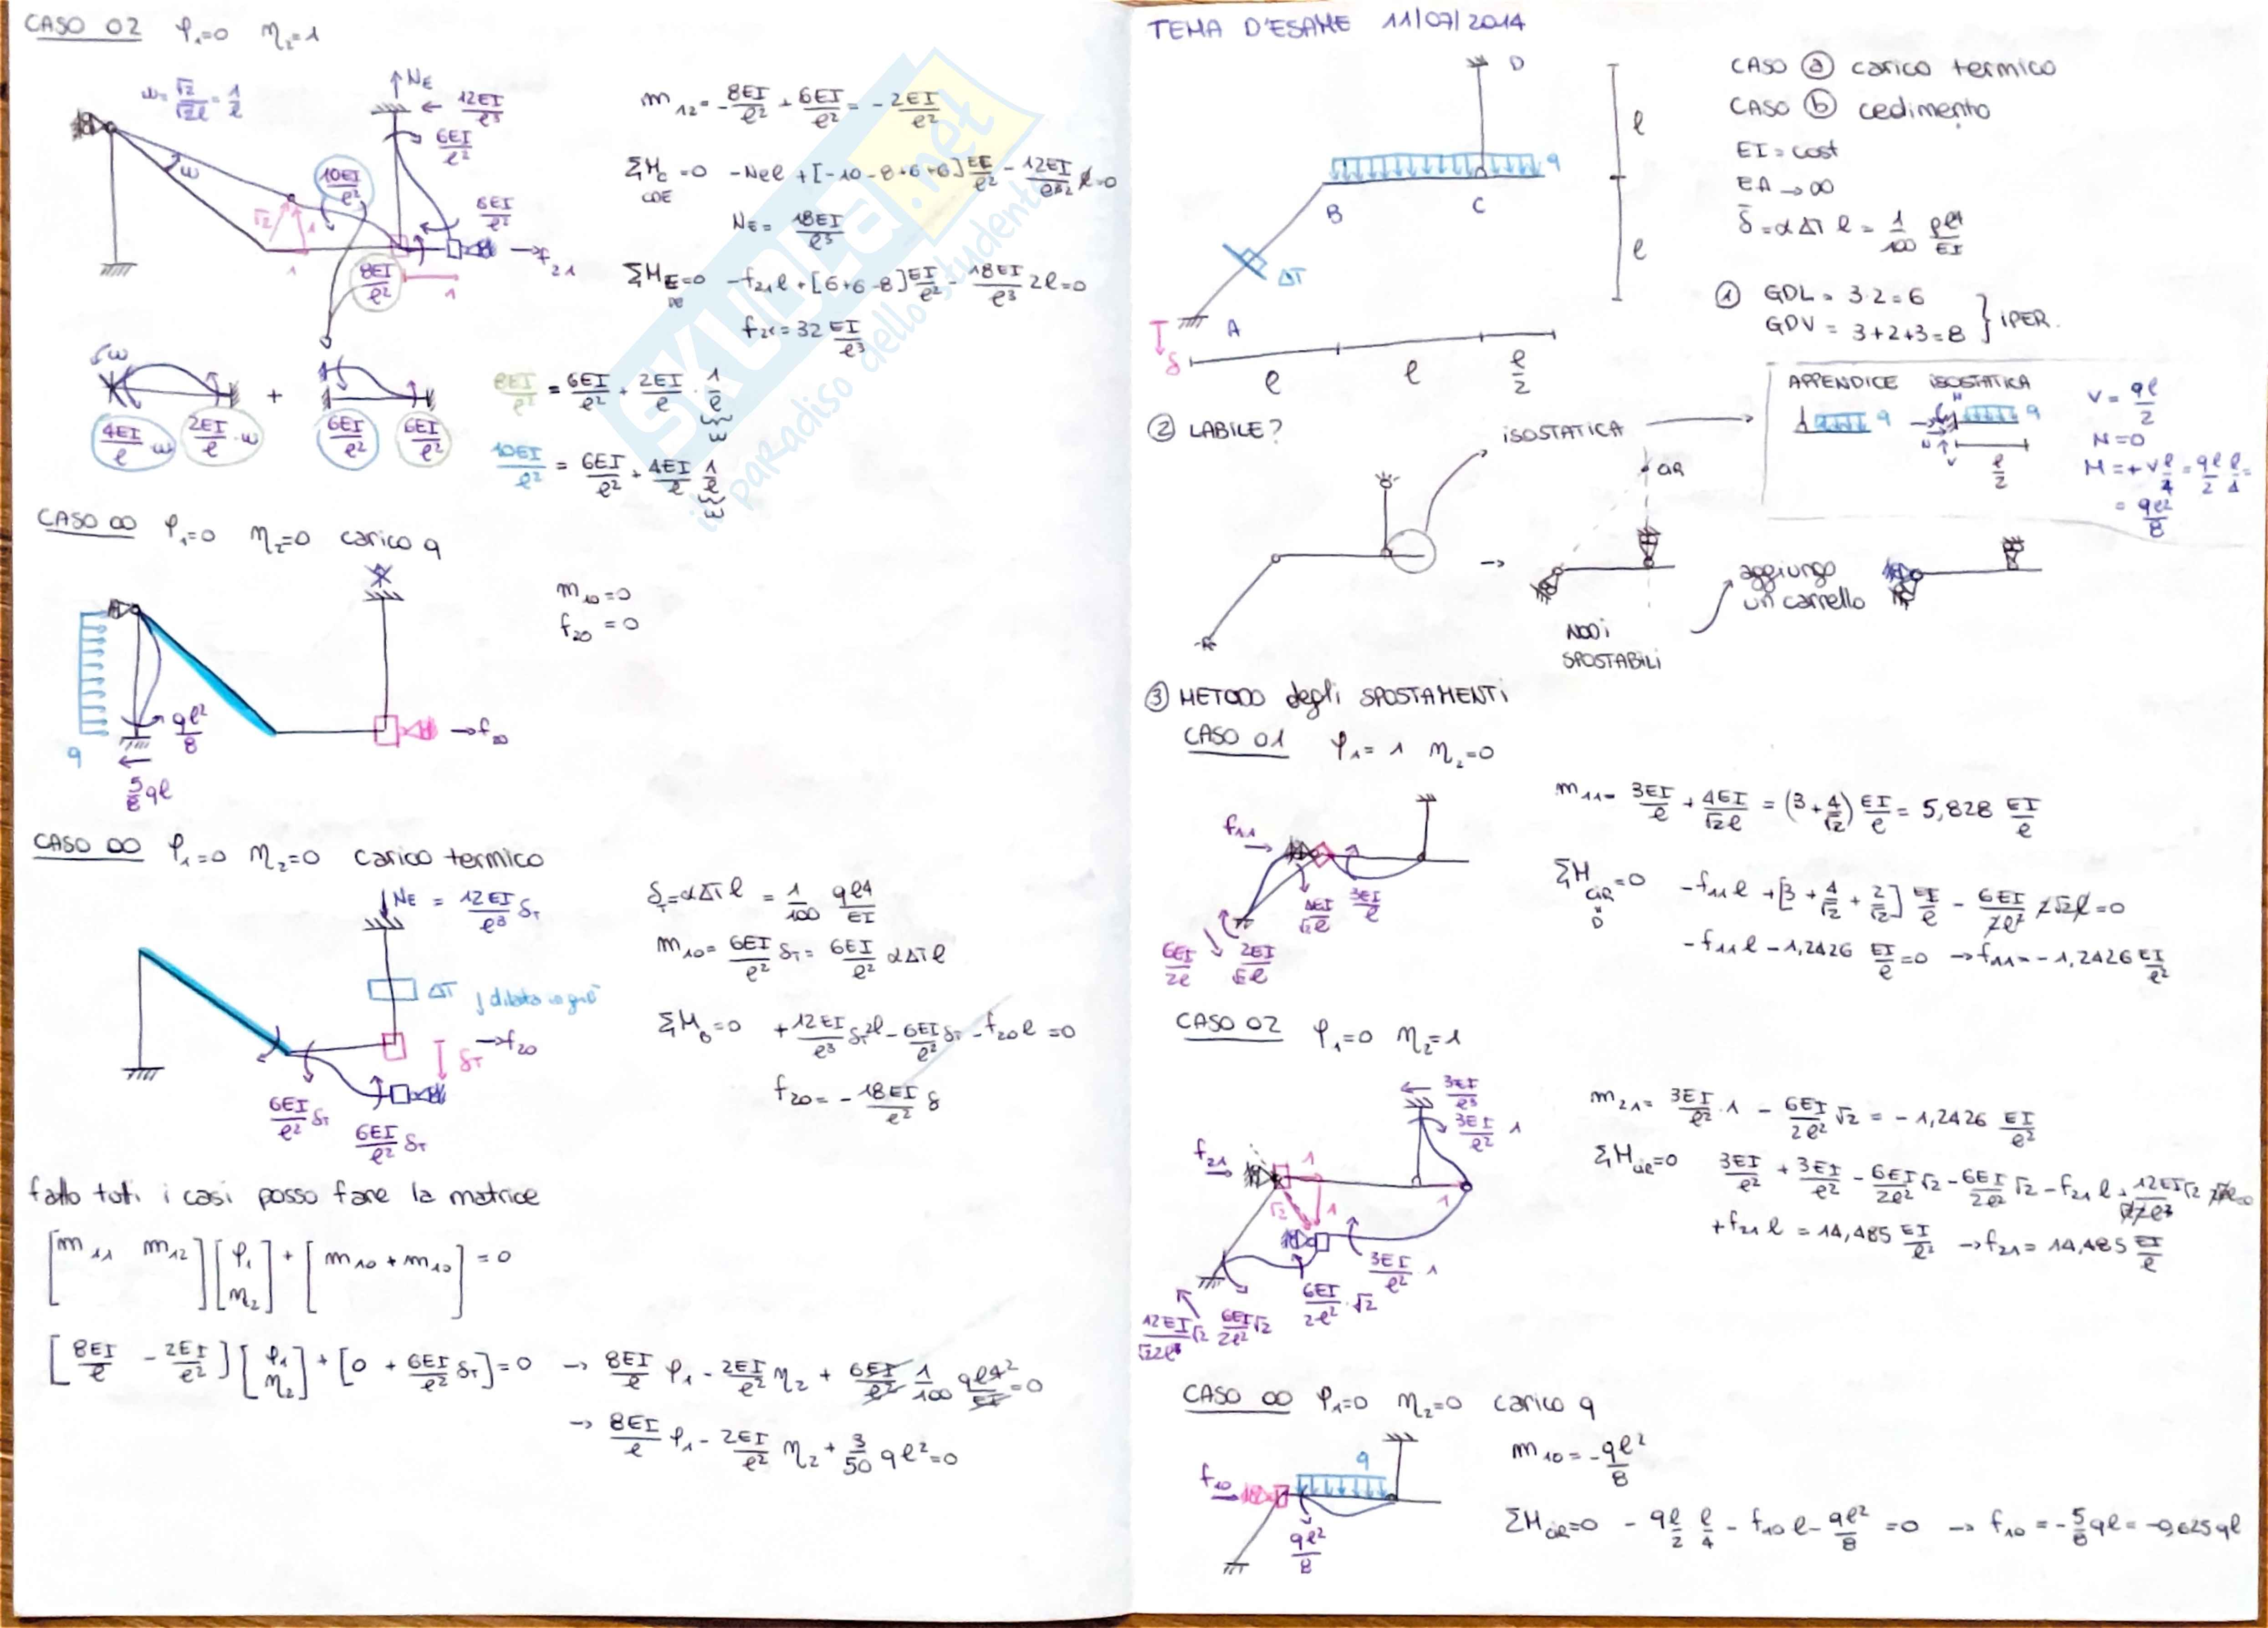 CASO 02 φ₁=0 η₂=1
ω = √2/√2l = 1/l
N_E
12EI/l³
6EI/l²
ω
10EI/l²
6EI/l²
√2 1
1
8EI/l²
1
f₂₁
m₁₂ = -8EI/l² + 6EI/l² = -2EI/l²
ΣM_C=0 CDE -N_E l + [-10-8+6+6] EI/l² - 12EI/l³ l=0
N_E = 18EI/l³
ΣM_E=0 -f₂₁l + [6+6-8] EI/l² - 18EI/l³ 2l=0
f₂₁ = 32 EI/l³
ω
4EI/l ω 2EI/l·ω + 6EI/l² 6EI/l²
8EI/l² = 6EI/l² + 2EI/l · 1/l
ω
10EI/l² = 6EI/l² + 4EI/l 1/l
ω
CASO 00 φ₁=0 η₂=0 carico q
m₁₀=0
f₂₀=0
q
ql²/8
5/8 ql
f₂₀
CASO 00 φ₁=0 η₂=0 carico termico
N_E = 12EI/l³ δ_T
ΔT ↓dilata in giù
f₂₀
δ_T
6EI/l² δ_T
6EI/l² δ_T
δ_T=αΔT l = 1/100 ql⁴/EI
m₁₀= 6EI/l² δ_T = 6EI/l² αΔT l
ΣM_B=0 +12EI/l³ δ_T 2l - 6EI/l² δ_T - f₂₀ l =0
f₂₀ = -18EI/l² δ
fatto tutti i casi posso fare la matrice
[m₁₁ m₁₂] [φ₁ η₂] + [m₁₀ + m₁₀] = 0
[8EI/l -2EI/l²] [φ₁ η₂] + [0 + 6EI/l² δ_T] = 0 → 8EI/l φ₁ - 2EI/l² η₂ + 6EI/l² 1/100 ql⁴²/EI =0
→ 8EI/l φ₁ - 2EI/l² η₂ + 3/50 ql²=0
TEMA D'ESAME 11/07/2014
D
q
B
C
ΔT
A
δ
l
l
l
l
l/2
CASO ⓐ carico termico
CASO ⓑ cedimento
EI=cost
EA→∞
δ̄=αΔT l = 1/100 pl⁴/EI
① GDL = 3·2=6
GDV = 3+2+3=8 } IPER.
② LABILE?
ISOSTATICA
APPENDICE ISOSTATICA
q
q
M
N
V
l/2
V = ql/2
N=0
M = +V l/4 = ql/2 l/4 =
= ql²/8
CIR
NODI
SPOSTABILI
aggiungo
un carrello
③ METODO degli SPOSTAMENTI
CASO 01 φ₁=1 η₂=0
f₁₁
4EI/√2l
3EI/l
6EI/2l²
2EI/√2l
m₁₁= 3EI/l + 4EI/√2l = (3+4/√2) EI/l = 5,828 EI/l
ΣM_CIR=D=0 -f₁₁l + [3 + 4/√2 + 2/√2] EI/l - 6EI/2l² 2√2l=0
-f₁₁l -1,2426 EI/l=0 → f₁₁= -1,2426 EI/l²
CASO 02 φ₁=0 η₂=1
3EI/l³
3EI/l² 1
f₂₁
1
√2 1
1
3EI/l² 1
6EI/2l² ·√2
12EI/√2 2l³ √2
6EI/2l² √2
m₂₁= 3EI/l² ·1 - 6EI/2l² √2 = -1,2426 EI/l²
ΣM_CIR=0 3EI/l² + 3EI/l² - 6EI/2l² √2 - 6EI/2l² √2 - f₂₁ l + 12EI√2
+f₂₁ l = 14,485 EI/l² → f₂₁= 14,485 EI/l
CASO 00 φ₁=0 η₂=0 carico q
f₁₀
q
ql²/8
m₁₀ = -ql²/8
ΣM_CIR=0 - ql/2 l/4 - f₁₀ l - ql²/8 =0 → f₁₀ = -5/8 ql = -0,625ql
SKUOLA.net
il paradiso dello studente